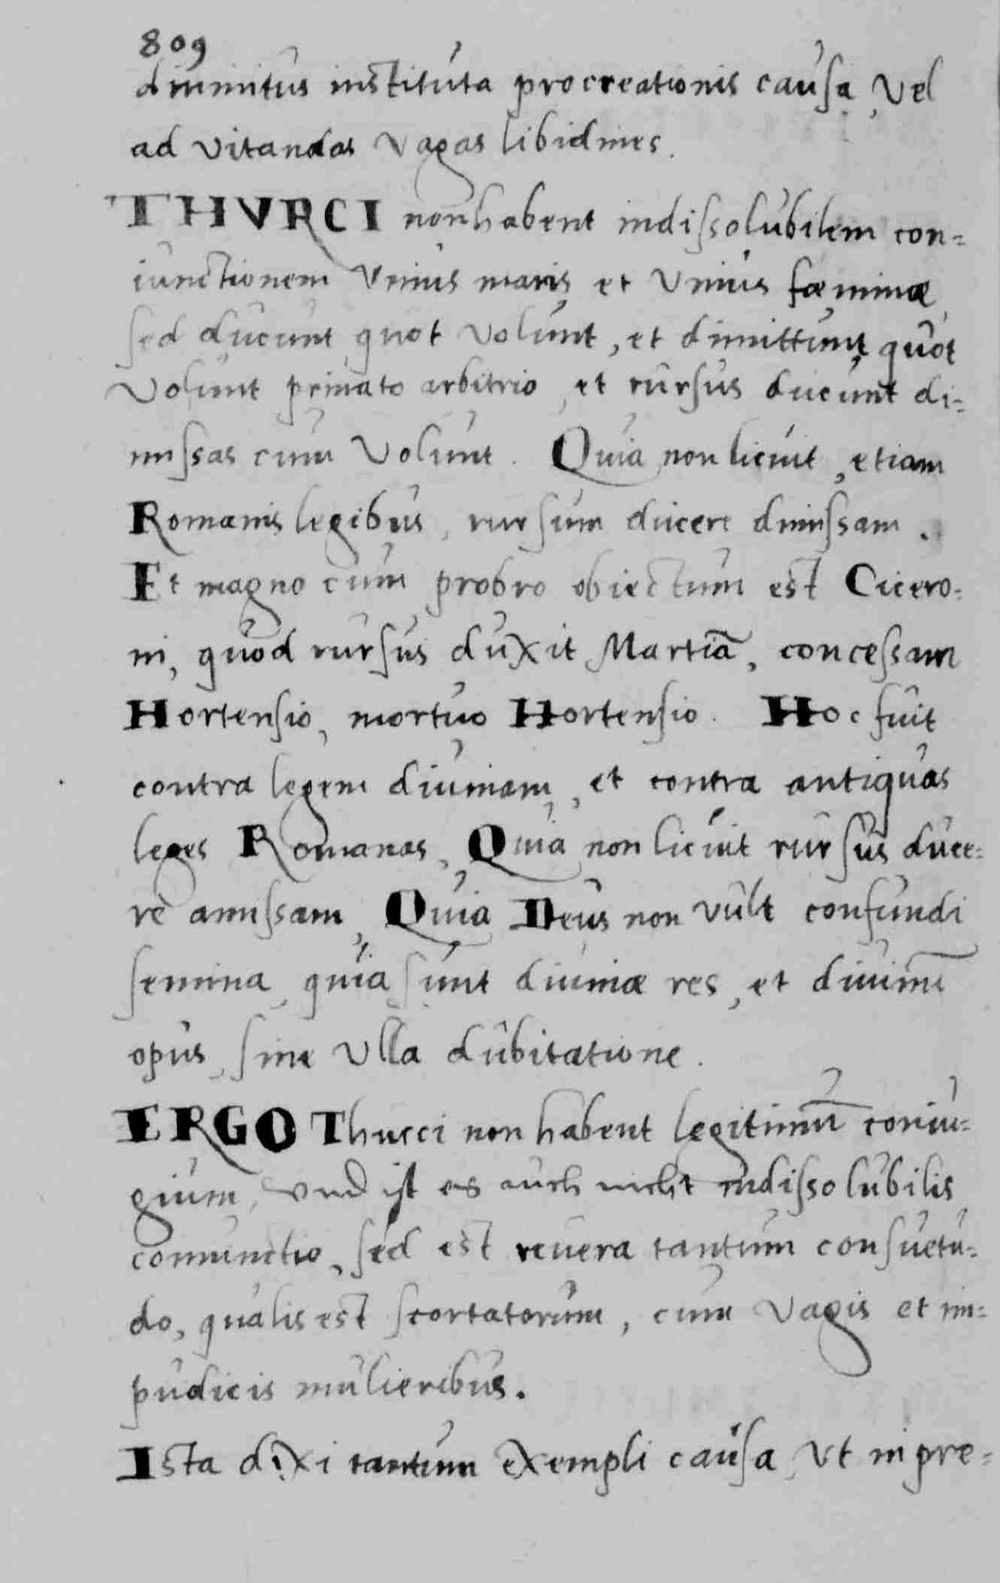 809
diuinitus instituta procreationis causa, vel
ad vitandas vagas libidines.
THVRCI non habent indissolubilem con-
iunctionem vnius maris et vnius fœminæ,
sed ducunt quot volunt, et dimittunt quot
volunt priuato arbitrio, et rursus ducunt di-
missas cum volunt. Quia non licuit, etiam
Romanis legibus, rursum ducere dimissam.
Et magno cum probro obiectum est Cicero-
ni, quod rursus duxit Martiā, concessam
Hortensio, mortuo Hortensio. Hoc fuit
contra legem diuinam, et contra antiquas
leges Romanas, Quia non licuit rursus duce-
re amissam, Quia Deus non vult confundi
semina, quia sunt diuinæ res, et diuinū
opus, sine vlla dubitatione.
ERGO Thurci non habent legitimū coniu-
gium, vnd ist es auch nicht indissolubilis
coniunctio, sed est reuera tantum consuetu-
do, qualis est scortatorum, cum vagis et im-
pudicis mulieribus.
Ista dixi tantum exempli causa, vt in præ-